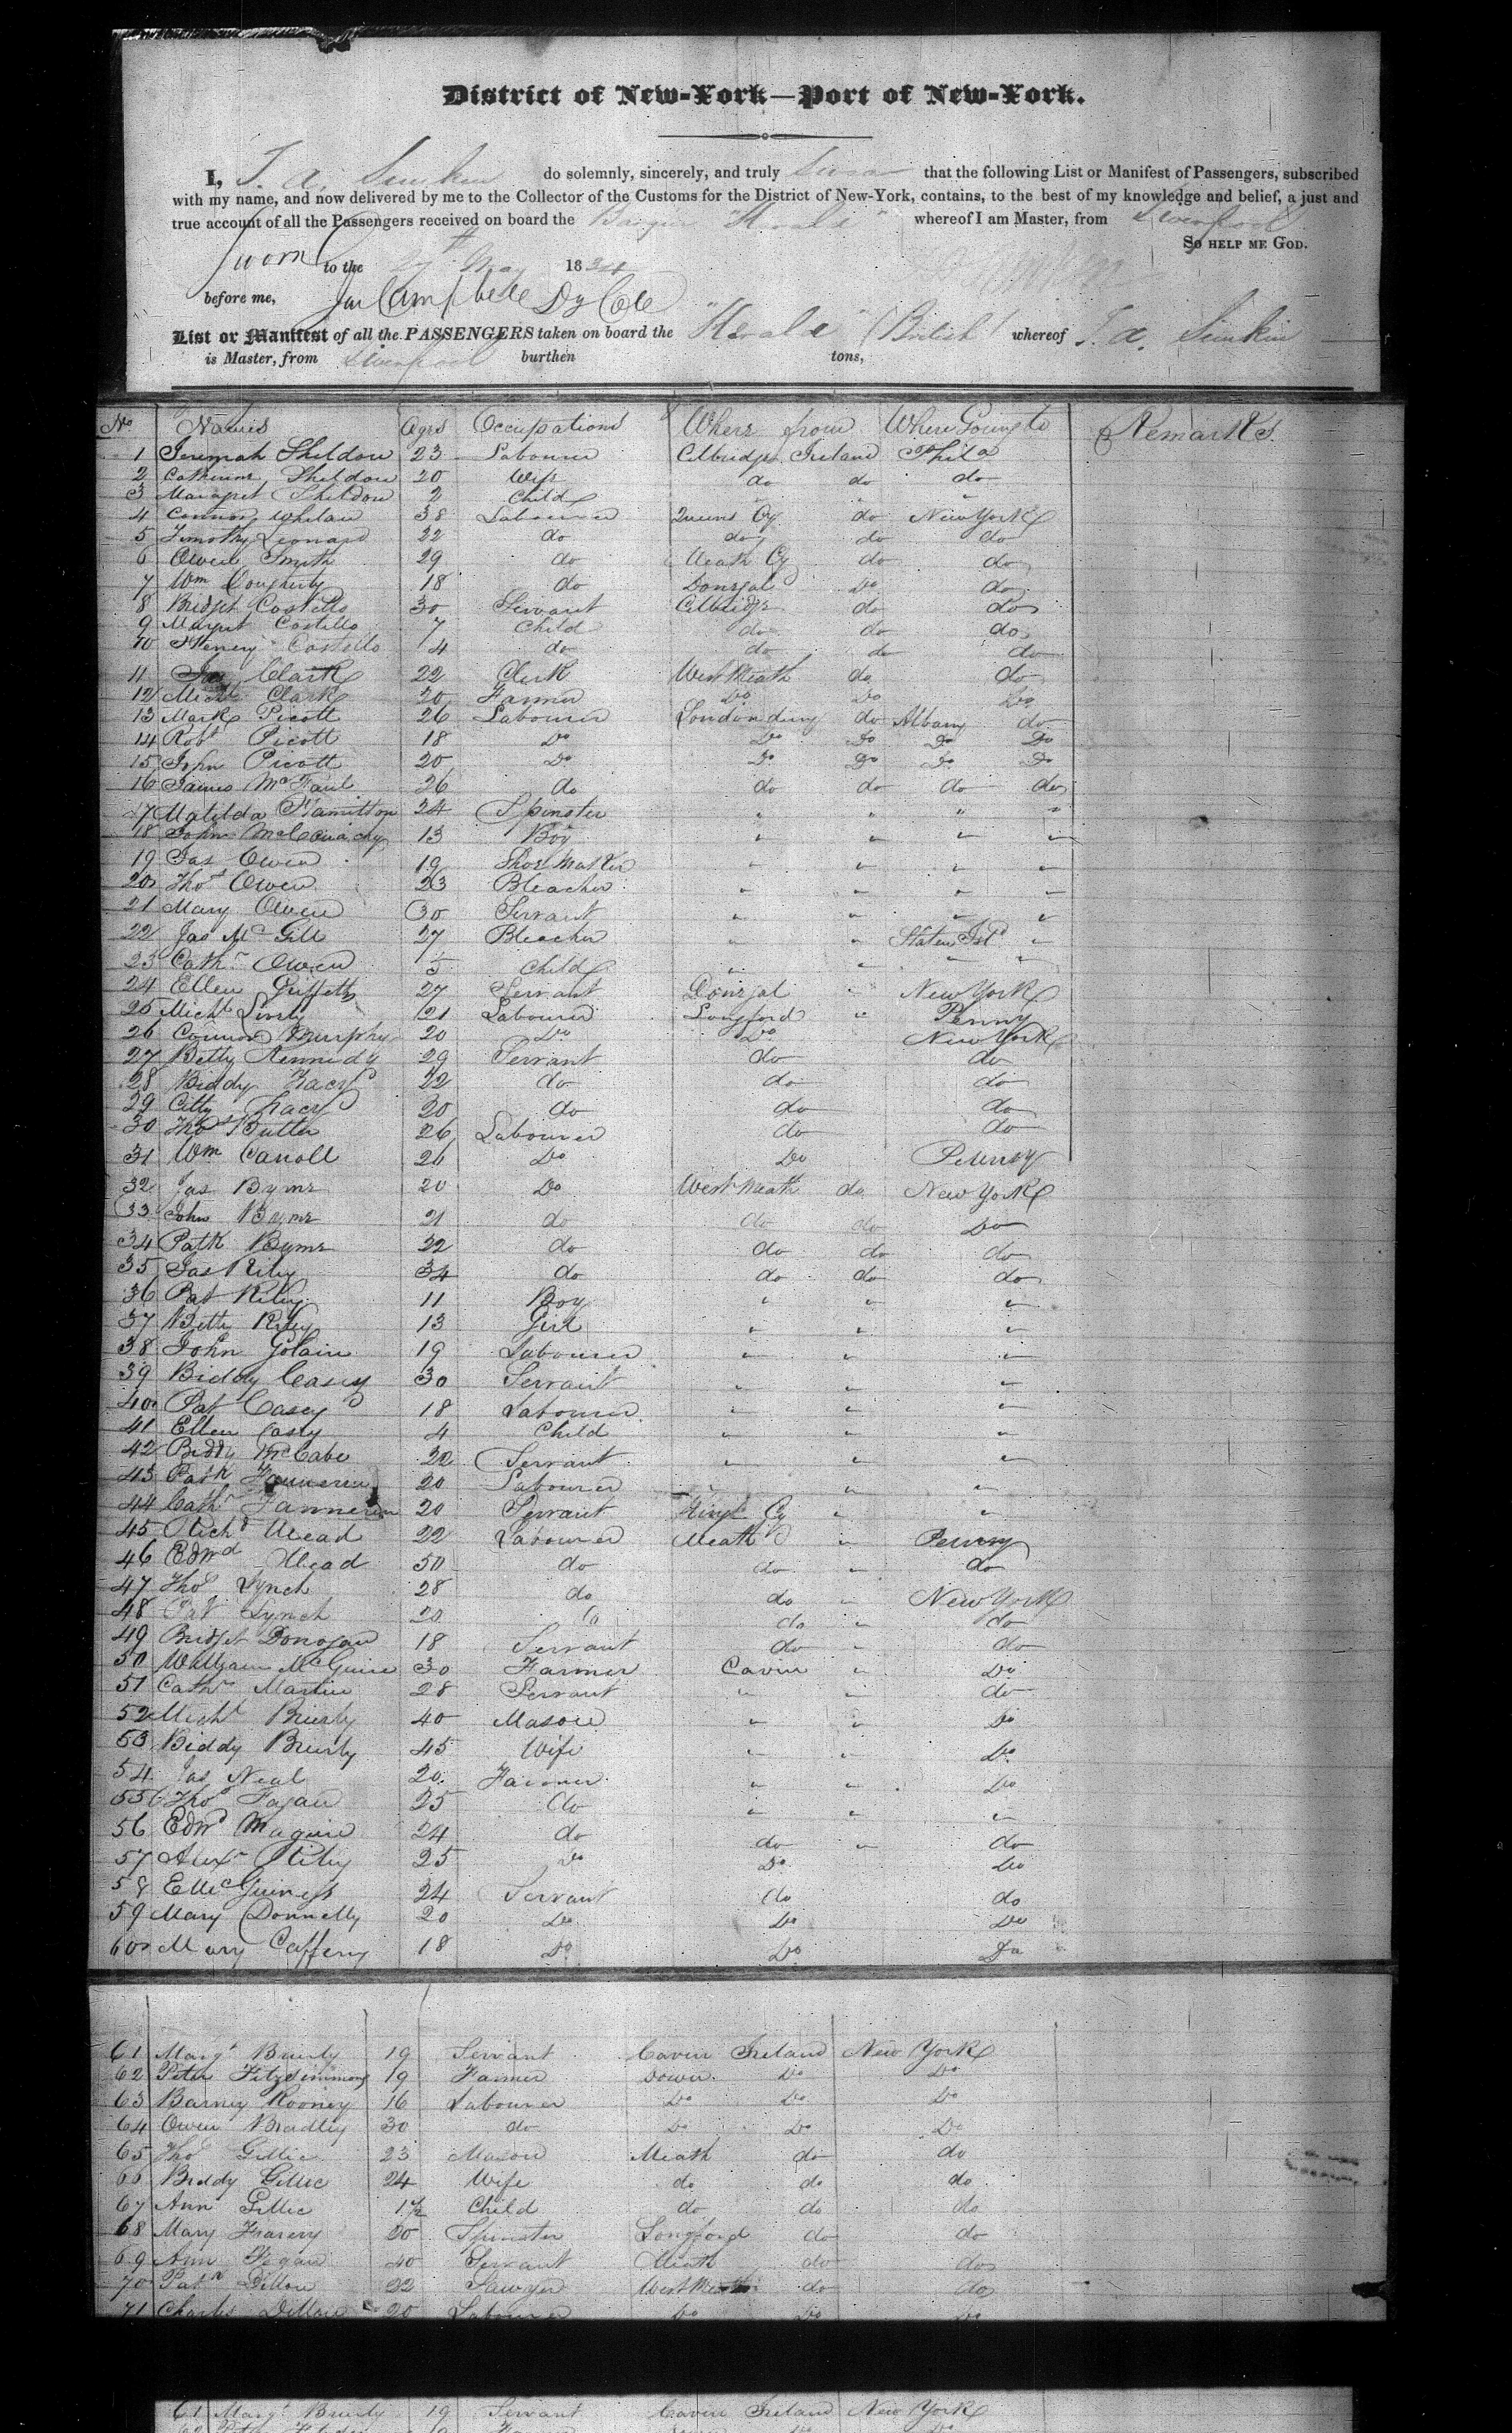 District of New-York—Port of New-York.
I, T. A. Simkin do solemnly, sincerely, and truly Swear that the following List or Manifest of Passengers, subscribed
with my name, and now delivered by me to the Collector of the Customs for the District of New-York, contains, to the best of my knowledge and belief, a just and
true account of all the Passengers received on board the Barque "Herald" whereof I am Master, from Liverpool
So help me God.
Sworn to the 27th May 1834
before me, Jas Campbell Dy Col
List or Manifest of all the PASSENGERS taken on board the "Herald" (British) whereof T. A. Simkin
is Master, from Liverpool burthen tons,
No Names Ages Occupations Where from Where Going to Remarks.
1 Jeremiah Sheldon 23 Labourer Celbridge Ireland Phila
2 Catherine Sheldon 20 Wife do do do
3 Margret Sheldon 2 Child " " "
4 Connor Whelan 38 Labourer Queens Cy do New York
5 Timothy Leonard 22 do do do do
6 Owen Smith 29 do Meath Cy do do
7 Wm Dougherty 18 do Donegal Do do
8 Bridget Costello 30 Servant Celbridge do do
9 Margret Costello 7 Child do do do
10 Henery Costello 4 do do do do
11 Jas Clark 22 Clerk West Meath do do
12 Michl Clark 20 Farmer Do Do Do
13 Mark Picott 26 Labourer Londonderry do Albany do
14 Robt Picott 18 Do Do Do Do Do
15 John Picott 20 Do Do Do Do Do
16 James McFaul 26 do do do do do
17 Matilda Hamilton 24 Spinster " " " "
18 John 13 Boy " " " "
19 Jas Owen 19 Shoe Maker " " " "
20 Thos Owen 23 Bleacher " " " "
21 Mary Owen 30 Servant " " " "
22 Jas McGill 27 Bleacher " " Staten Isd "
23 Cathr Owen 5 Child " " " "
24 Ellen Griffeth 27 Servant Donegal " New York
25 Michl 21 Labourer Longford " Penny
26 Connor Murphy 20 Do Do New York
27 Betty Kennidy 29 Servant do do
28 Biddy Tracy 22 do do do
29 Citty Tracy 20 do do do
30 Thos Butler 26 Labourer do do
31 Wm Carroll 26 Do Do Pennsy
32 Jas Byrne 20 Do West Meath do New York
33 John Byrne 21 do do do Do
34 Patk Byrne 22 do do do do
35 Jas Riley 34 do do do do
36 Pat Riley 11 Boy " " "
37 Betty Riley 13 Girl " " "
38 John Golain 19 Labourer " " "
39 Biddy Casey 30 Servant " " "
40 Pat Casey 18 Labourer " " "
41 Ellen Casey 4 Child " " "
42 Biddy McCabe 22 Servant " " "
43 Patk Fanneren 20 Labourer " " "
44 Cathr Fanneren 20 Servant Kings Cy " "
45 Richd Mead 22 Labourer Meath " Pennsy
46 Edwd Mead 50 do do " do
47 Thos Lynch 28 do do " New York
48 Pat Lynch 20 do do " do
49 Bridget Donogan 18 Servant do " do
50 William McGuire 30 Farmer Cavin " Do
51 Cathr Martin 28 Servant " " do
52 Michl Brierly 40 Mason " " Do
53 Biddy Brierly 45 Wife " " Do
54 Jas Neal 20 Farmer " " Do
55 Thos Fagan 25 do " " "
56 Edwd Maguire 24 do do " do
57 Alexr Riley 25 Do Do Do
58 Ell McGuiness 24 Servant do do
59 Mary Donnelly 20 Do Do Do
60 Mary Caffery 18 Do Do Do
61 Margt Brierly 19 Servant Cavin Ireland New York
62 Peter Fitzsimmons 19 Farmer Down Do Do
63 Barney Rooney 16 Labourer Do Do Do
64 Owen Bradley 30 do Do Do Do
65 Thos Gillic 23 Mason Meath do do
66 Biddy Gillic 24 Wife do do do
67 Ann Gillic 1½ Child do do do
68 Mary 20 Spinster Longford do do
69 Ann Fegan 40 Servant Meath do do
70 Patk Dillon 22 Sawyer West Meath do do
71 Charles Dillon 20 Labourer Do Do Do
61 Margt Brierly 19 Servant Cavin Ireland New York